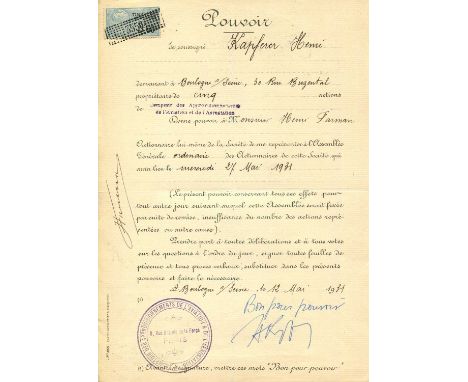 Pouvoir
Je soussigné Kapferer Henri
demeurant à Boulogne s/ Seine, 30 Rue Bugental
propriétaire de cinq actions
de Comptoir des Approvisionnements
de l'Aviation et de l'Aérostation
Donne pouvoir à Monsieur Henri Farman
Actionnaire lui-même de la Société de me représenter à l'Assemblée
Générale ordinaire des Actionnaires de cette Société qui
aura lieu le mercredi 27 Mai 1931
(Le présent pouvoir conservant tous ses effets pour
tout autre jour suivant auquel cette Assemblée serait fixée
par suite de remise, insuffisance du nombre des actions repré-
sentées ou autre cause).
Prendre part à toutes délibérations et à tous votes
sur les questions à l'ordre du jour, signer toutes feuilles de
présence et tous procès verbaux, substituer dans les présents
pouvoirs et faire le nécessaire.
à Boulogne s/ Seine le 12 Mai 1931
(1)
Bon pour pouvoir
PARIS
(1) Avant la signature, mettre ces mots "Bon pour pouvoir"